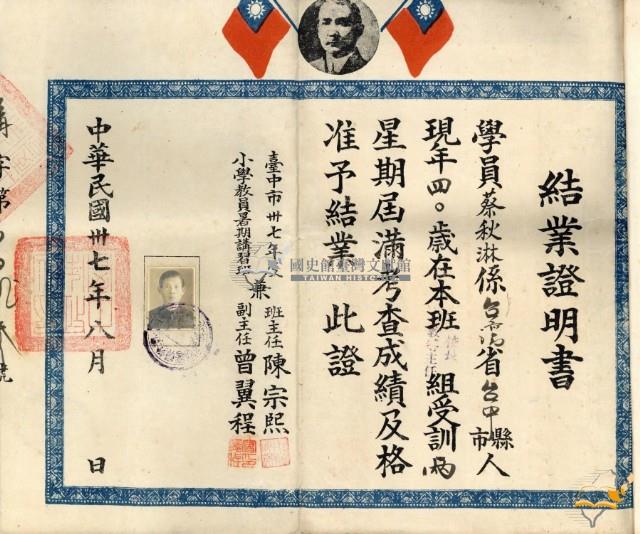 結業證明書
學員蔡秋淋係台灣省台中縣市人
現年四〇歲在本班組受訓兩
星期屆滿考查成績及格
准予結業此證
臺中市卅七年度
小學教員暑期講習班
兼班主任陳宗熙
副主任曾翼程
中華民國卅七年八月日
字第
號
國史館臺灣文獻館
TAIWAN HISTORICA